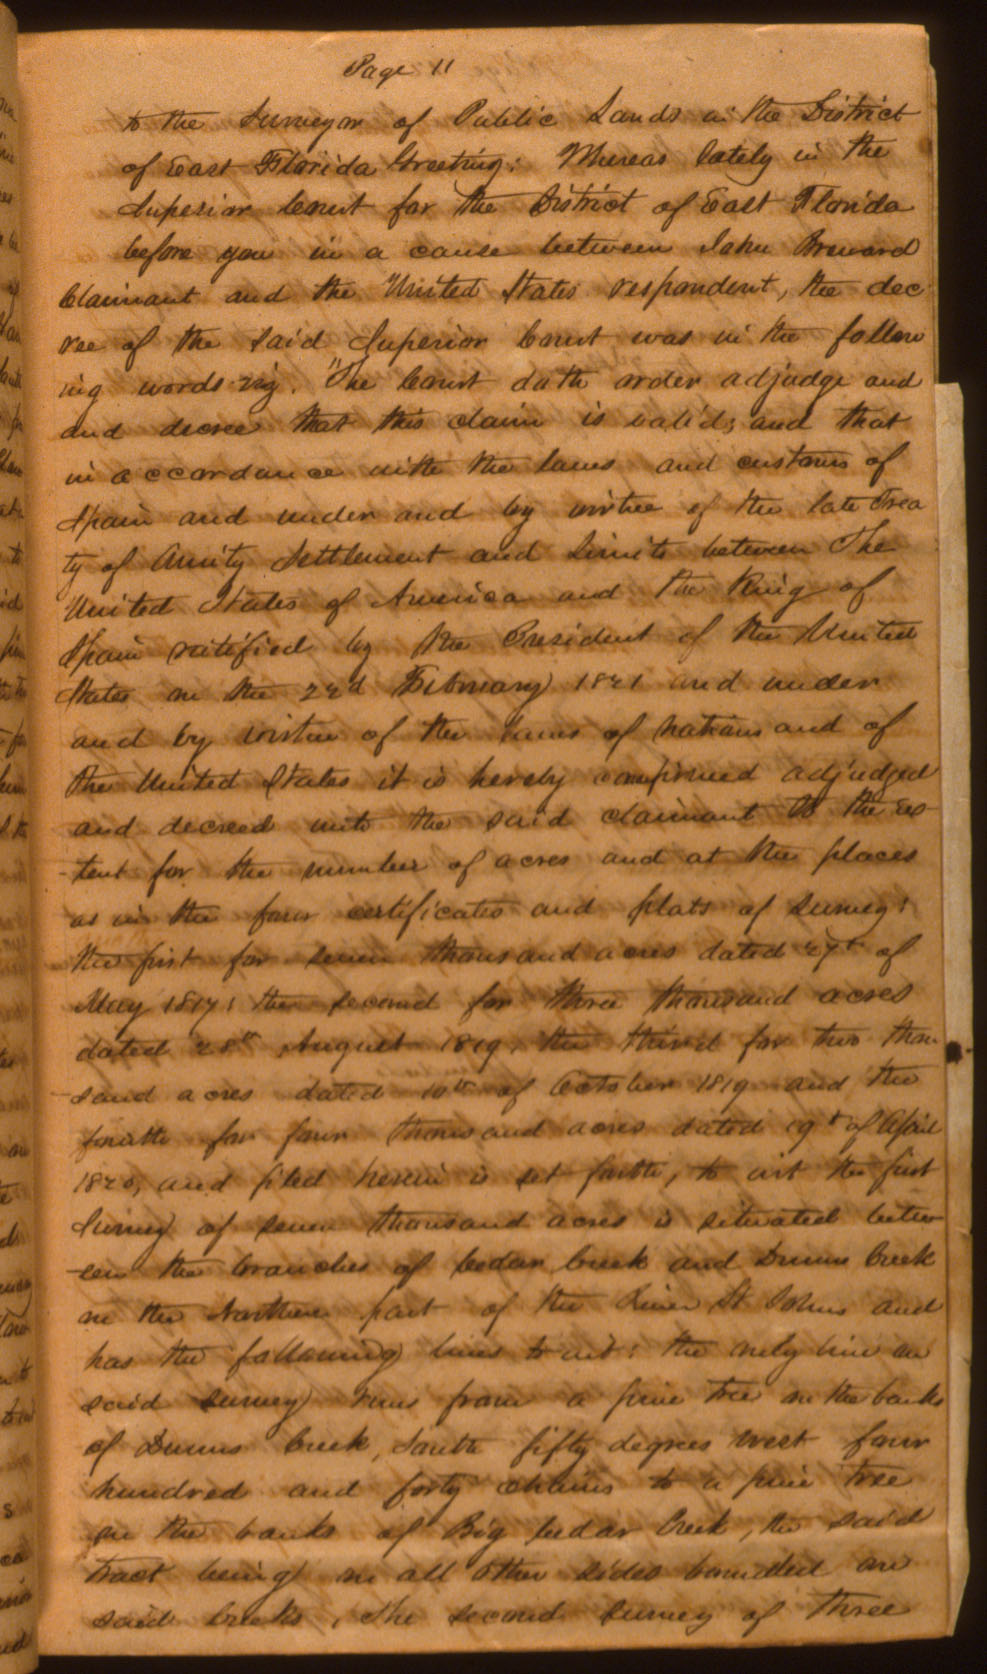 Page 11
to the Surveyor of Public Lands in the District
of East Florida Greeting: Whereas lately in the
Superior Court for the District of East Florida
before you in a cause between John Breward
Claimant and the United States respondent, the dec
ree of the said Superior Court was in the follow
ing words viz. "The Court doth order adjudge and
and decree that this claim is valid; and that
in accordance with the laws and customs of
Spain and under and by virtue of the late Trea
ty of Amity Settlement and Limits between The
United States of America and the King of
Spain ratified by the President of the United
States on the 22d February 1821 and under
and by virtue of the laws of nations and of
the United States it is hereby confirmed adjudged
and decreed unto the said claimant to the ex-
-tent for the number of acres and at the places
as in the four certificates and plats of survey:
the first for seven thousand acres dated 27t of
May 1817: the second for three thousand acres
dated 28th August 1819, the third for two thou-
-sand acres dated 10th of October 1819 and the
fourth for four thousand acres dated 19t of April
1820, and filed herein is set forth, to wit the first
Survey of seven thousand acres is situated betw-
-een the branches of Cedar Creek and Dunns Creek
on the Northern part of the River St Johns and
has the following lines to wit: the only line on
said survey runs from a pine tree on the banks
of Dunns Creek, South fifty degrees West four
hundred and forty chains to a pine tree
on the banks of Big Cedar Creek, the said
tract being on all other sides bounded on
said creeks, The second survey of three